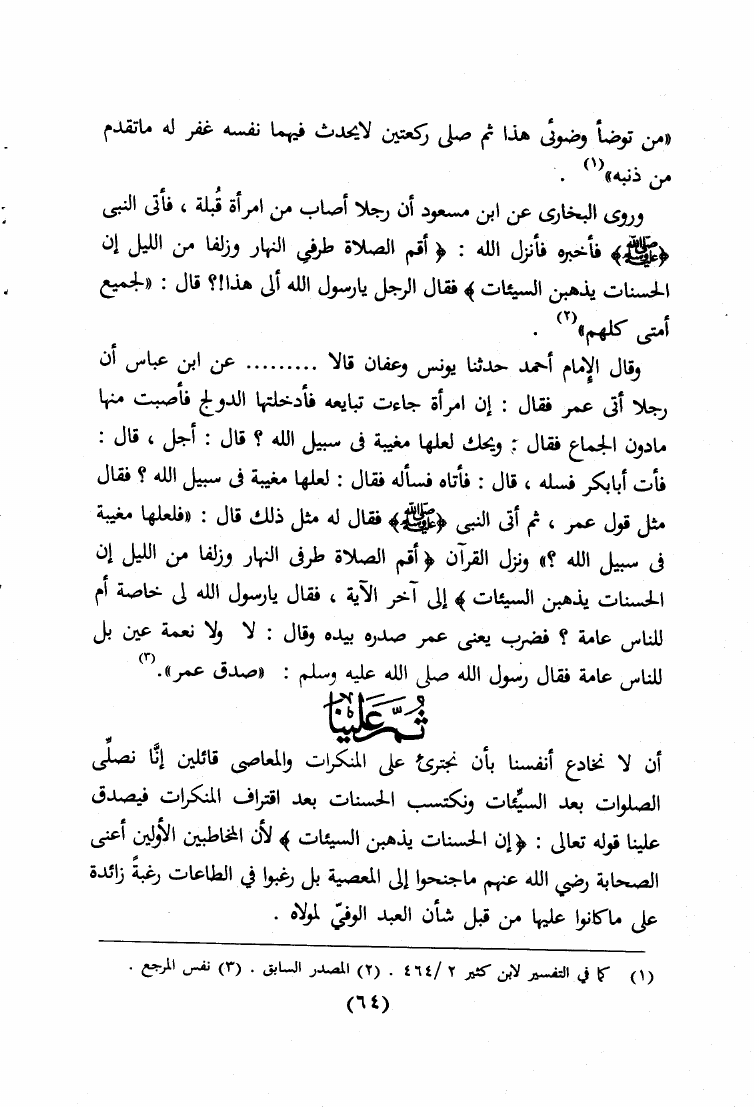 «من توضأ وضوئى هذا ثم صلى ركعتين لايحدث فيهما نفسه غفر له ماتقدم
من ذنبه»(١) .
وروى البخارى عن ابن مسعود أن رجلا أصاب من امرأة قُبلة ، فأتى النبى
﴿ﷺ﴾ فأخبره فأنزل الله : ﴿ أقم الصلاة طرفي النهار وزلفا من الليل إن
الحسنات يذهبن السيئات ﴾ فقال الرجل يارسول الله ألى هذا!؟ قال : «لجميع
أمتى كلهم»(٢) .
وقال الإمام أحمد حدثنا يونس وعفان قالا ......... عن ابن عباس أن
رجلا أتى عمر فقال : إن امرأة جاءت تبايعه فأدخلتها الدولج فأصبت منها
مادون الجماع فقال : ويحك لعلها مغيبة فى سبيل الله ؟ قال : أجل ، قال :
فأت أبابكر فسله ، قال : فأتاه فسأله فقال : لعلها مغيبة فى سبيل الله ؟ فقال
مثل قول عمر ، ثم أتى النبى ﴿ﷺ﴾ فقال له مثل ذلك قال : «فلعلها مغيبة
فى سبيل الله ؟» ونزل القرآن ﴿ أقم الصلاة طرفى النهار وزلفا من الليل إن
الحسنات يذهبن السيئات ﴾ إلى آخر الآية ، فقال يارسول الله لى خاصة أم
للناس عامة ؟ فضرب يعنى عمر صدره بيده وقال : لا ولا نعمة عين بل
للناس عامة فقال رسول الله صلى الله عليه وسلم : «صدق عمر».(٣)
ثُمَّ عَلَينا
أن لا نخادع أنفسنا بأن نجترئ على المنكرات والمعاصى قائلين إنَّا نصلِّى
الصلوات بعد السيِّئات ونكتسب الحسنات بعد اقتراف المنكرات فيصدق
علينا قوله تعالى : ﴿ إن الحسنات يذهبن السيئات ﴾ لأن المخاطبين الأولين أعنى
الصحابة رضي الله عنهم ماجنحوا إلى المعصية بل رغبوا في الطاعات رغبةً زائدة
على ماكانوا عليها من قبل شأن العبد الوفيّ لمولاه .
(١) كما في التفسير لابن كثير ٢ /٤٦٤ . (٢) المصدر السابق . (٣) نفس المرجع .
(٦٤)